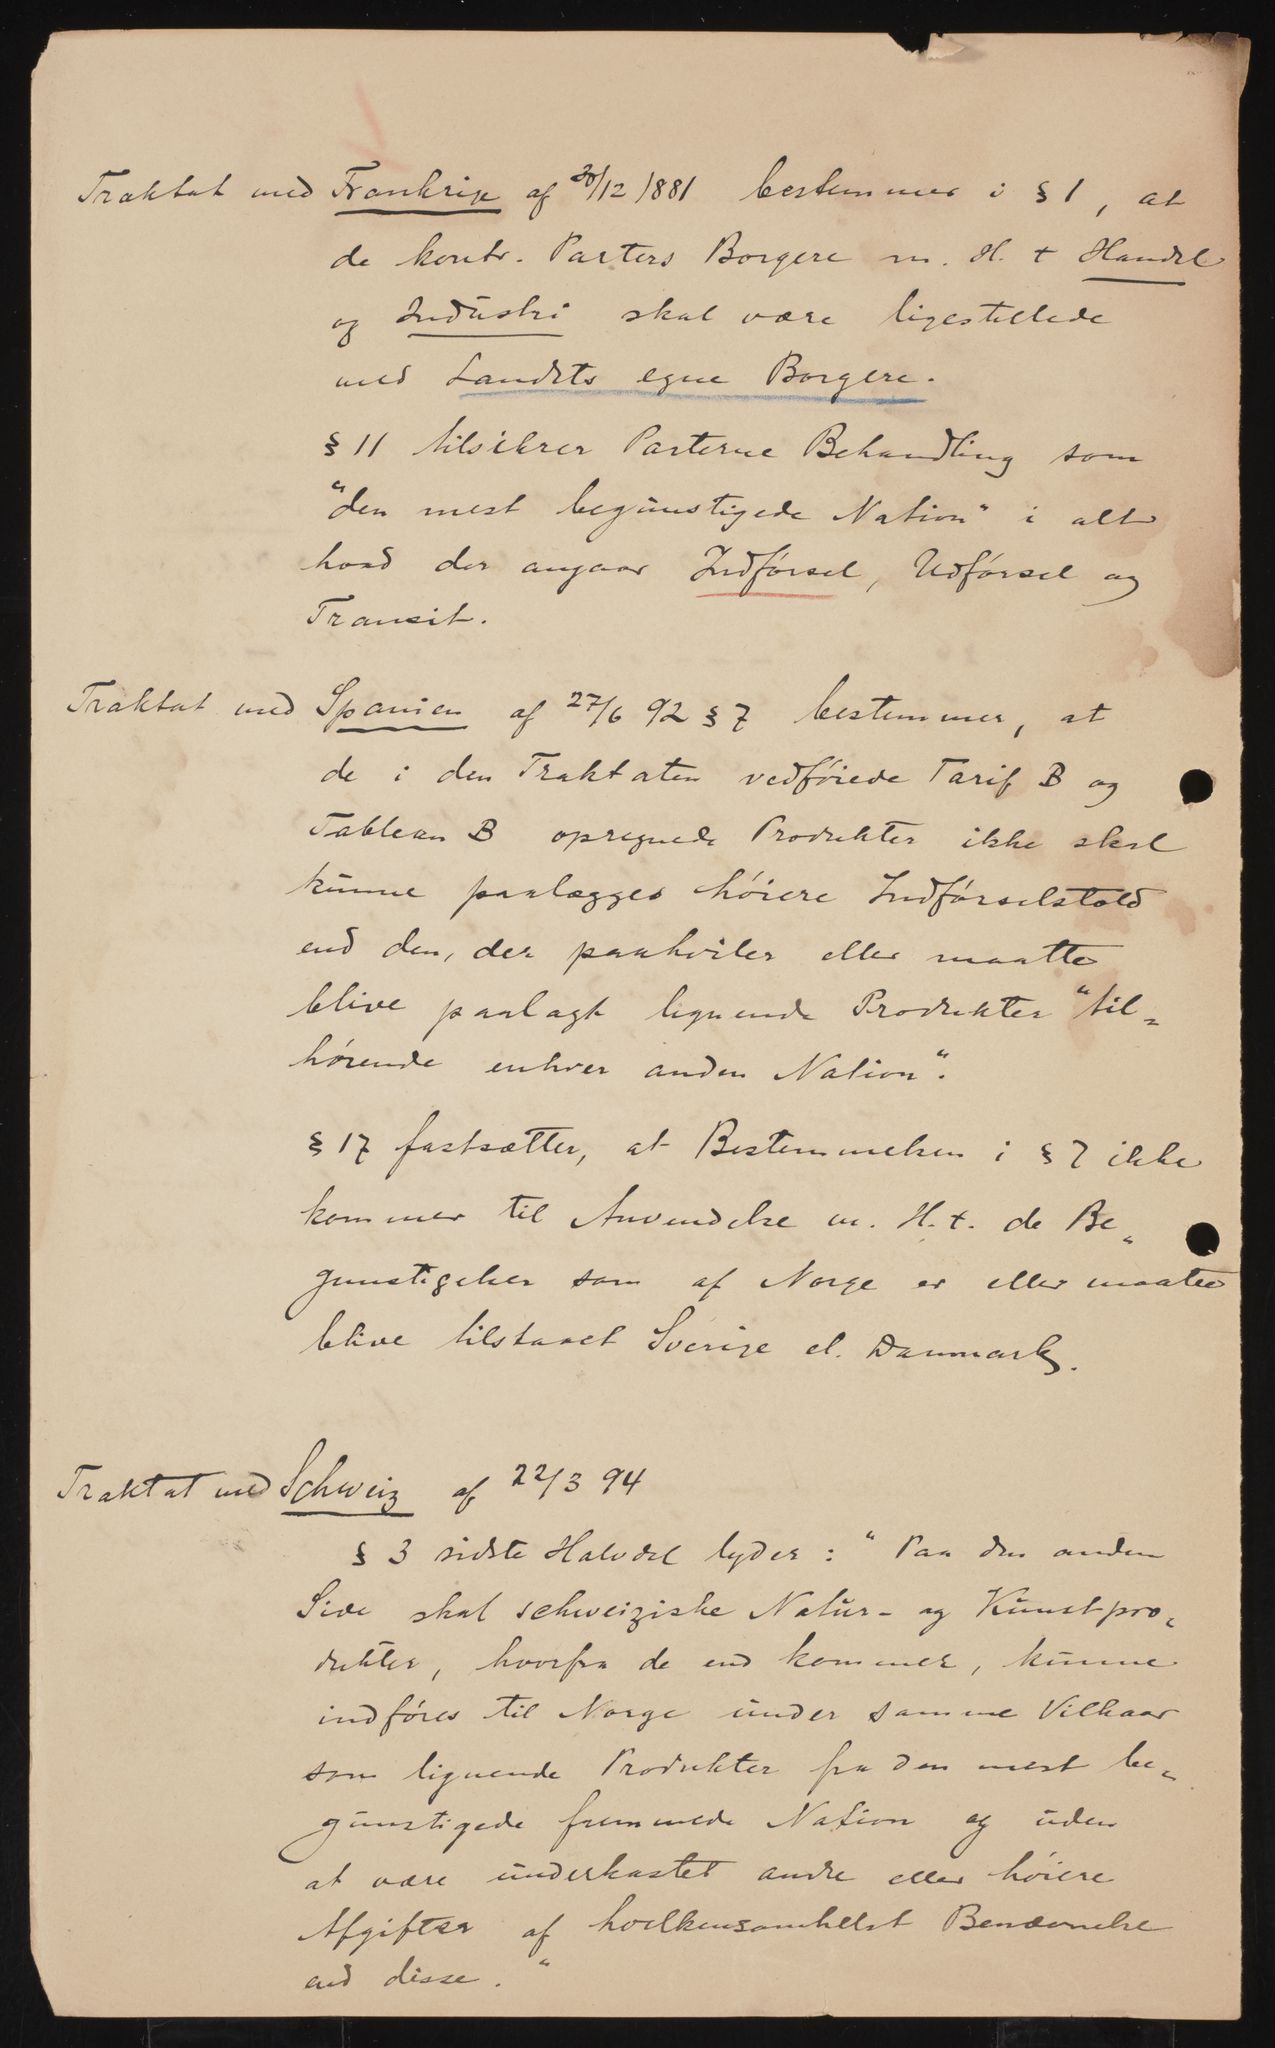 Traktat med Frankrige af 30/12 1881 bestemmer i § 1, at
de kontr. Parters Borgere m. H. t Handel
og Industri skal være ligestillede
med Landets egne Borgere.
§ 11 tilsikrer Parterne Behandling som
"den mest begunstigede Nation" i alt
hvad der angaar Indförsel, Udförsel og
Transit.
Traktat med Spanien af 27/6 92 § 7 bestemmer, at
de i den Traktaten vedföiede Tarif B og
Tableau B opregnede Produkter ikke skal
kunne paalægges höiere Indförselstold
end den, der paahviler eller maatte
blive paalagt lignende Produkter "til-
hörende enhver anden Nation".
§ 17 fastsætter, at Bestemmelsen i § 7 ikke
kommer til Anvendelse m. H. t. de Be-
gunstigelser som af Norge er eller maatte
blive tilstaaet Sverige el. Danmark.
Traktat med Schweiz af 22/3 94
§ 3 sidste Halvdel lyder: "Paa den anden
Side skal schweiziske Natur- og Kunstpro-
dukter, hvorfra de end kommer, kunne
indföres til Norge under samme Vilkaar
som lignende Produkter fra den mest be-
gunstigede fremmede Nation og uden
at være underkastet andre eller höiere
Afgifter af hvilkensomhelst Benævnelse
end disse."